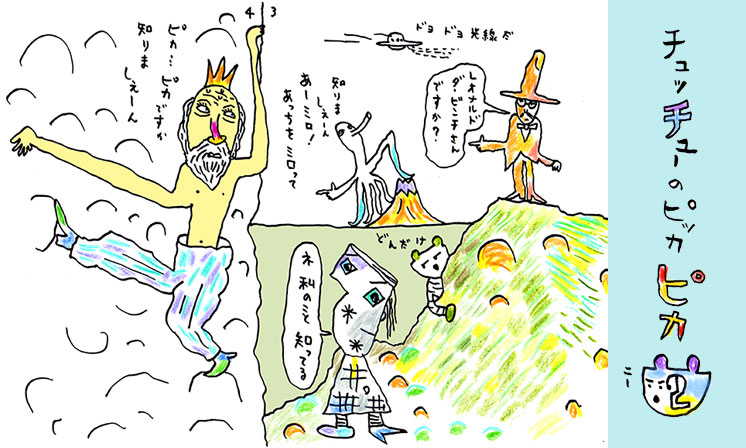 チュッチューのピッカピカ
2
ニー
4 3
ドヨ ドヨ 光線
レオナルド
ダ・ビンチさん
ですか?
知りま
しぇーん
あーミロ!
あっちをミロって
どんだけ
ネ 私のこと 知ってる
ピカ…ピカですか
知りま
しぇーん